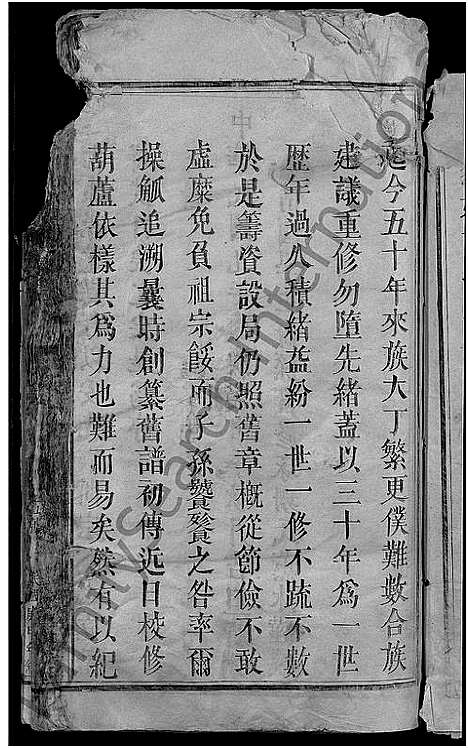 迄今五十年來族大丁繁更僕難數合族
建議重修勿墮先緒蓋以三十年爲一世
歷年過久積緒益紛一世一修不䟽不數
於是籌資設局仍照舊章概從節儉不敢
虛糜免負祖宗餒而子孫饕餮之咎率爾
操觚追溯曩時創纂舊譜初傳近日校修
葫蘆依樣其爲力也難而易矣然有以紀